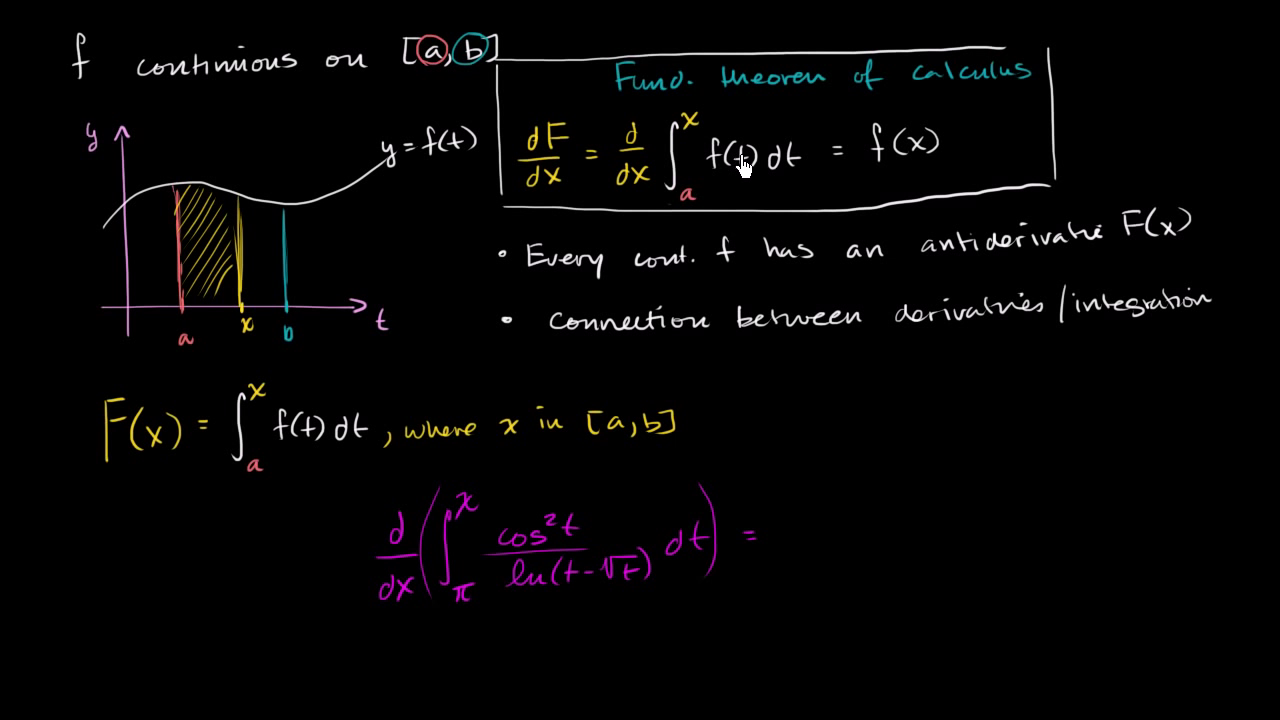 f continuous on [a, b]
Fund. theorem of calculus
dF/dx = d/dx ∫ₐˣ f(t) dt = f(x)
y
y = f(t)
a x b t
• Every cont. f has an antiderivative F(x)
• connection between derivatives/integration
F(x) = ∫ₐˣ f(t) dt, where x in [a,b]
d/dx (∫_π^x cos²t / ln(t-√t) dt) =